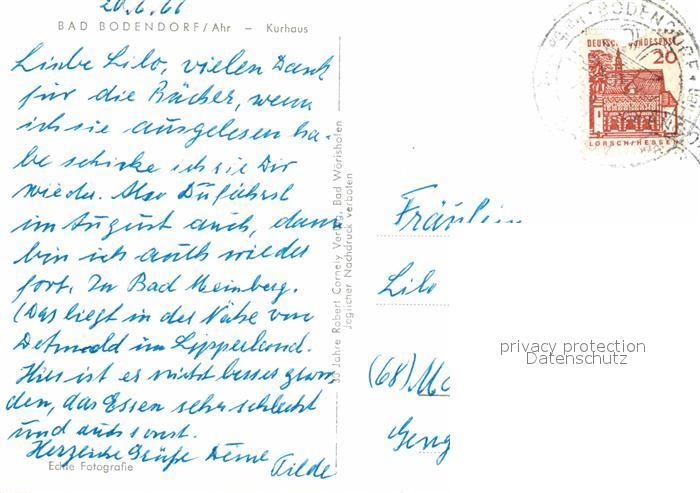 20.6.66
BAD BODENDORF/Ahr – Kurhaus
Liebe Lilo, vielen Dank
für die Bücher, wenn
ich sie ausgelesen ha-
be schicke ich sie Dir
wieder. Also Du fährst
im August auch, dann
bin ich auch wieder
fort. In Bad Meinberg.
(Das liegt in der Nähe von
Detmold im Lipperland.
Hier ist es nicht besser gewor-
den, das Essen sehr schlecht
und auch sonst.
Herzliche Grüße Deine
Tilde
Echte Fotografie
35 Jahre Robert Cornely Verlag, Bad Wörishofen
Jeglicher Nachdruck verboten
BODENDORF
DEUTSCHE BUNDESPOST
20
LORSCH/HESSEN
Fräulein
Lilo
(68) Ma
Geng
privacy protection
Datenschutz